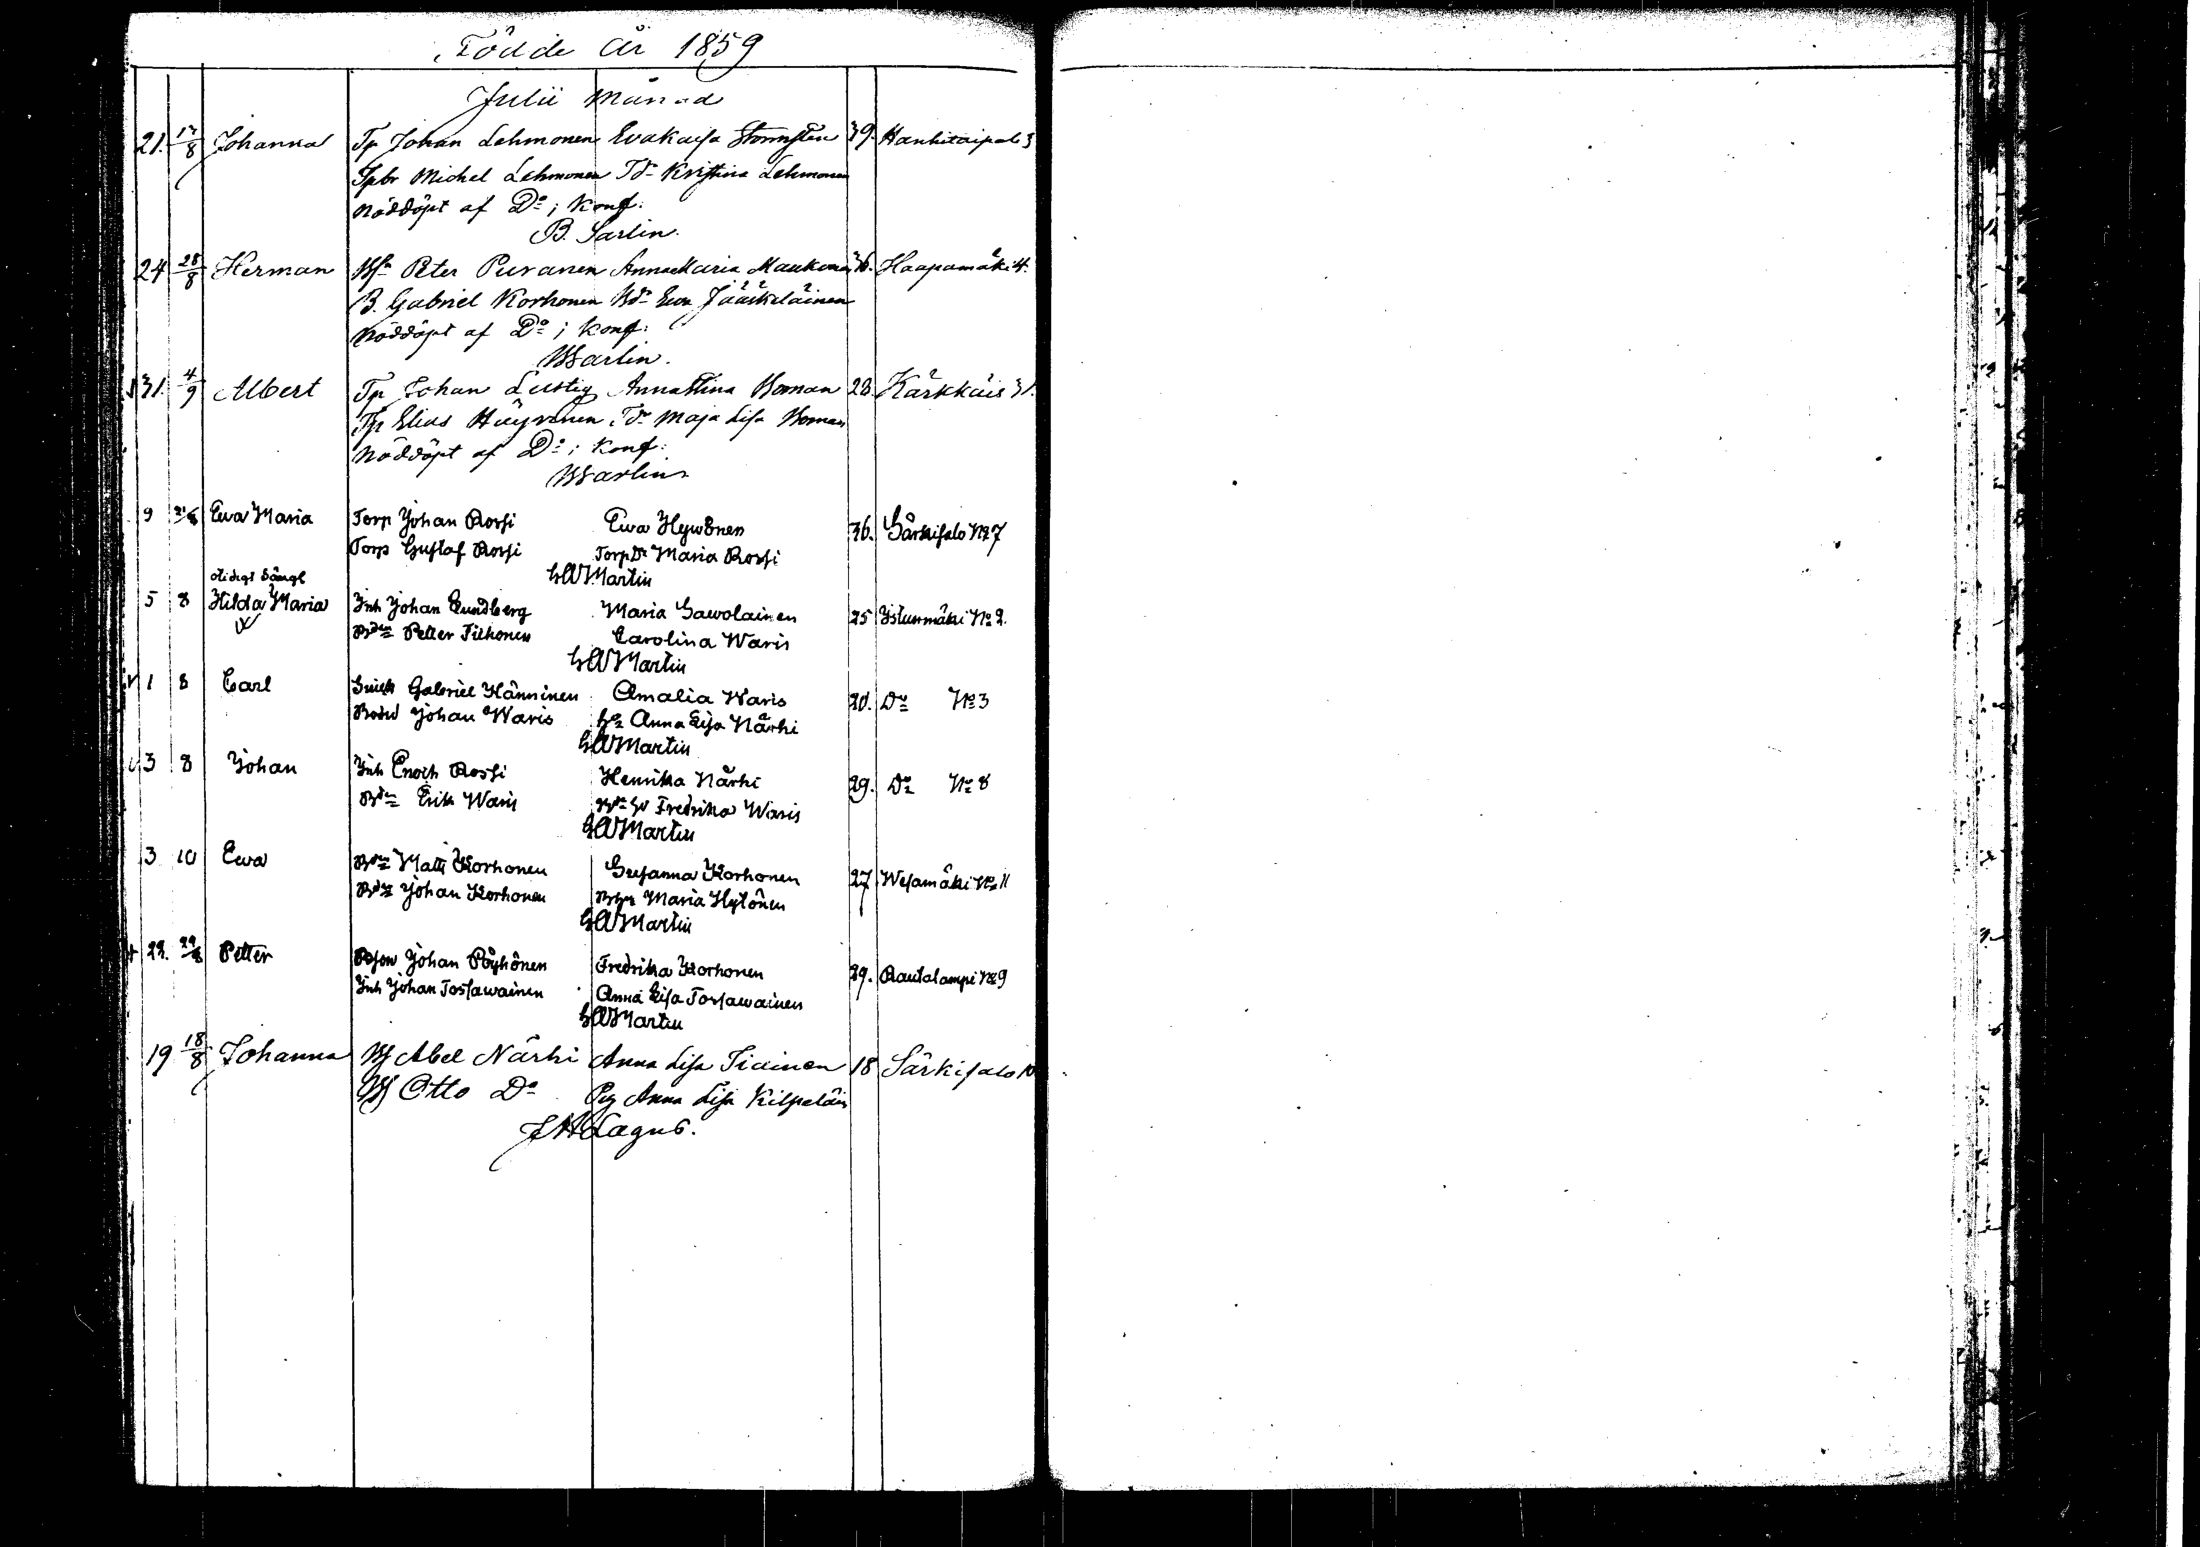 Födde År 1859
Julii Månad
21. 17/8 Johanna Tp Johan Lehmonen Eva Kaisa Stormsten 39. Hankitaipale 3
Tpbr Michel Lehmonen Td: Kristina Lehmonen
nöddöpt af Do; Konf:
B. Sarlin.
24 28/8 Herman Peter Puranen Anna Maria Maukonen 36. Haapamäki 4.
B. Gabriel Korhonen Bd: Eva Jääskeläinen
nöddöpt af Do; Konf:
Sarlin.
31. 4/9 Albert Tp Johan Lustig Anna Stina Homan 28. Kärkkäis 31.
Tp Elias Häyrinen Td: Maja Lisa Homan
Nöddöpt af Do; Konf:
Sarlin
9 21/8 Ewa Maria Torp Johan Rossi Ewa Hywönen 36. Särkisalo No 7
Torp Gustaf Rossi Torp Dr Maria Rossi
Martin
5 8 Hilda Maria Inh Johan Lundberg Maria Sawolainen 25 Istunmäki No 2.
Petter Tiihonen Carolina Waris
Martin
1 8 Carl Gabriel Hänninen Amalia Waris 20. Do No 3
Johan Waris Anna Lisa Närhi
Martin
3 8 Johan Inh Enoch Rossi Henrika Närhi 29. Do No 8
Erik Waris Fredrika Waris
Martin
3 10 Ewa Matti Korhonen Susanna Korhonen 27 Wesamäki No 11
Johan Korhonen Maria Hytönen
Martin
+ 22. 29/8 Petter Johan Pöyhönen Fredrika Korhonen 29. Rautalampi No 9
Inh Johan Tossawainen Anna Lisa Tossawainen
Martin
19 18/8 Johanna Abel Närhi Anna Lisa Tiainen 18 Särkisalo 10
Otto Do Pig Anna Lisa Kilpeläin
Lagus.